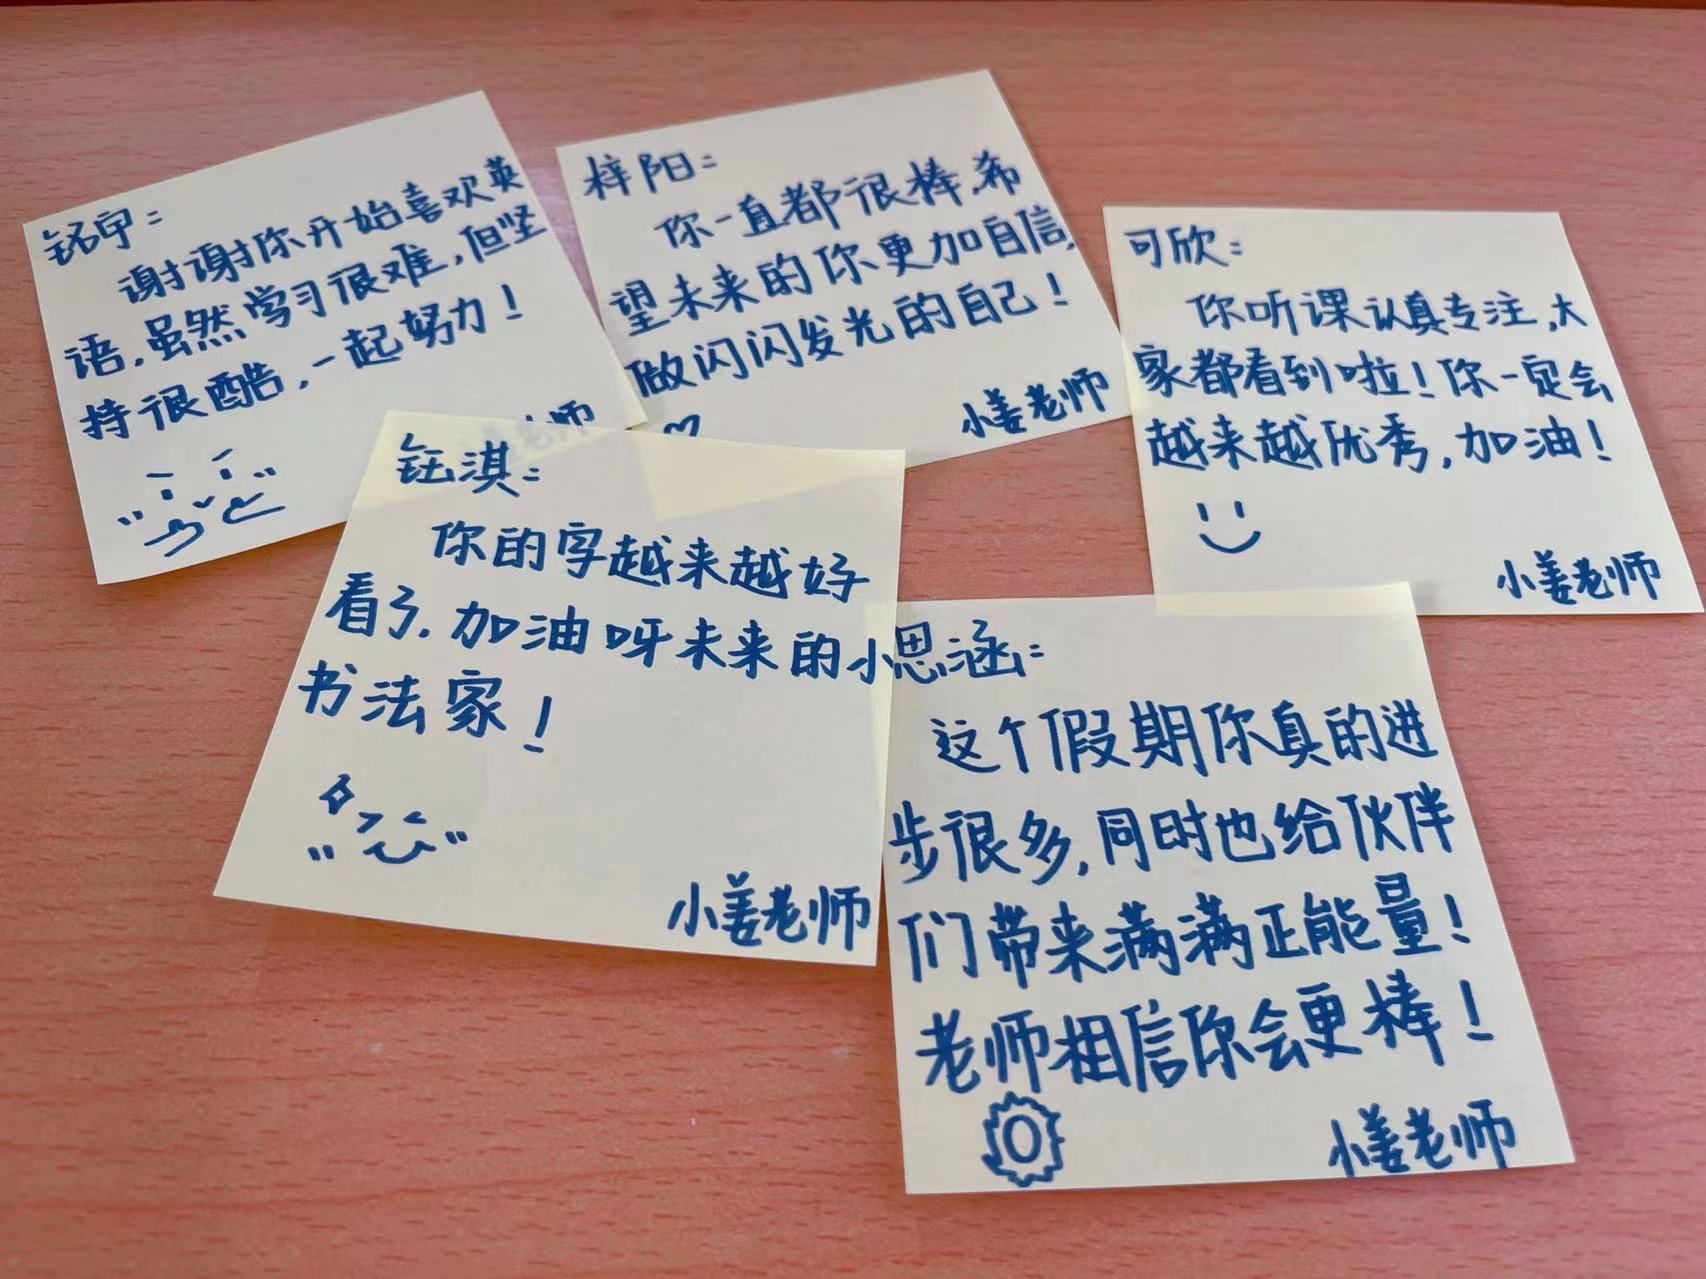 铭宇：
谢谢你开始喜欢英
语，虽然学习很难，但坚
持很酷，一起努力！
老师
梓阳：
你一直都很棒，希
望未来的你更加自信，
做闪闪发光的自己！
小姜老师
可欣：
你听课认真专注，大
家都看到啦！你一定会
越来越优秀，加油！
小姜老师
钰淇：
你的字越来越好
看了，加油呀未来的小
书法家！
小姜老师
思涵：
这个假期你真的进
步很多，同时也给伙伴
们带来满满正能量！
老师相信你会更棒！
小姜老师